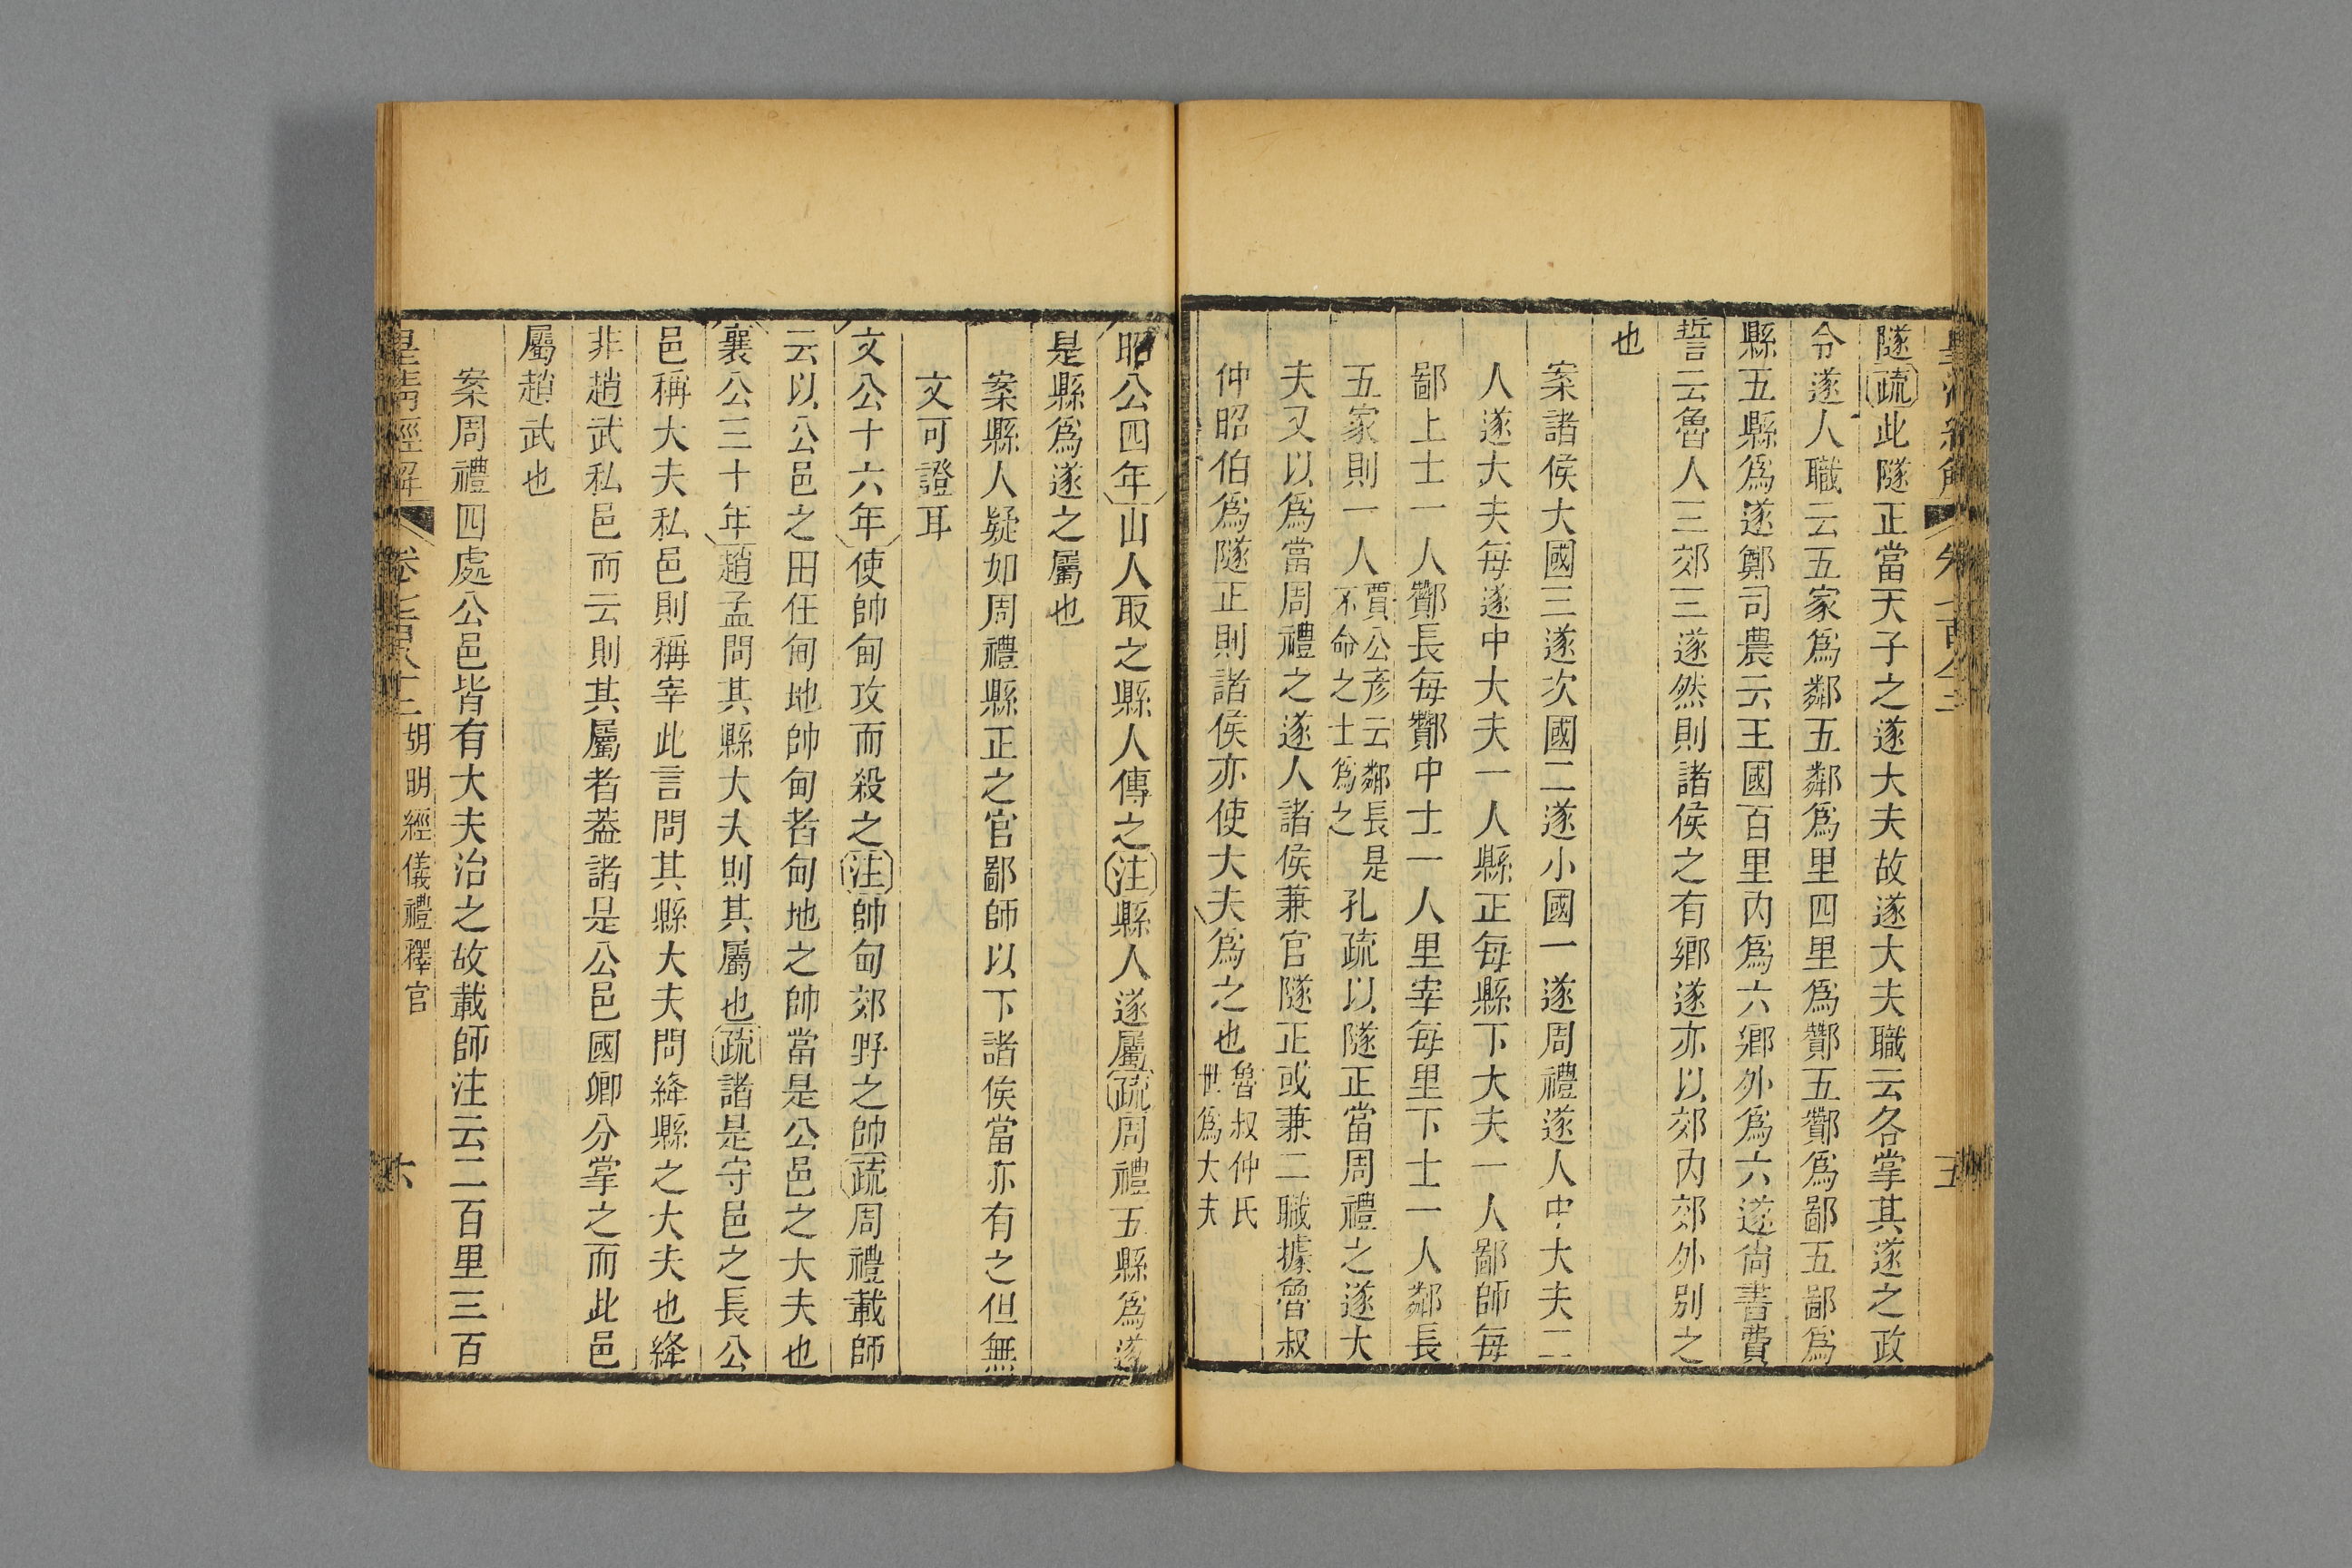 隧疏此隧正當天子之遂大夫故遂大夫職云各掌其遂之政
令遂人職云五家爲鄰五鄰爲里四里爲酇五酇爲鄙五鄙爲
縣五縣爲遂鄭司農云王國百里内爲六鄉外爲六遂尙書費
誓云魯人三郊三遂然則諸侯之有鄉遂亦以郊内郊外別之
也
案諸侯大國三遂次國二遂小國一遂周禮遂人中大夫二
人遂大夫每遂中大夫一人縣正每縣下大夫一人鄙師每
鄙上士一人酇長每酇中士一人里宰每里下士一人鄰長
五家則一人賈公彥云鄰長是不命之士爲之孔疏以隧正當周禮之遂大
夫又以爲當周禮之遂人諸侯兼官隧正或兼二職據魯叔
仲昭伯爲隧正則諸侯亦使大夫爲之也魯叔仲氏世爲大夫
昭公四年山人取之縣人傳之注縣人遂屬疏周禮五縣爲遂
是縣爲遂之屬也
案縣人疑如周禮縣正之官鄙師以下諸侯當亦有之但無
文可證耳
文公十六年使帥甸攻而殺之注帥甸郊野之帥疏周禮載師
云以公邑之田任甸地帥甸者甸地之帥當是公邑之大夫也
襄公三十年趙孟問其縣大夫則其屬也疏諸是守邑之長公
邑稱大夫私邑則稱宰此言問其縣大夫問絳縣之大夫也絳
非趙武私邑而云則其屬者葢諸是公邑國卿分掌之而此邑
屬趙武也
案周禮四處公邑皆有大夫治之故載師注云二百里三百
皇淸經解
卷七百八十三
胡明經儀禮釋官
六